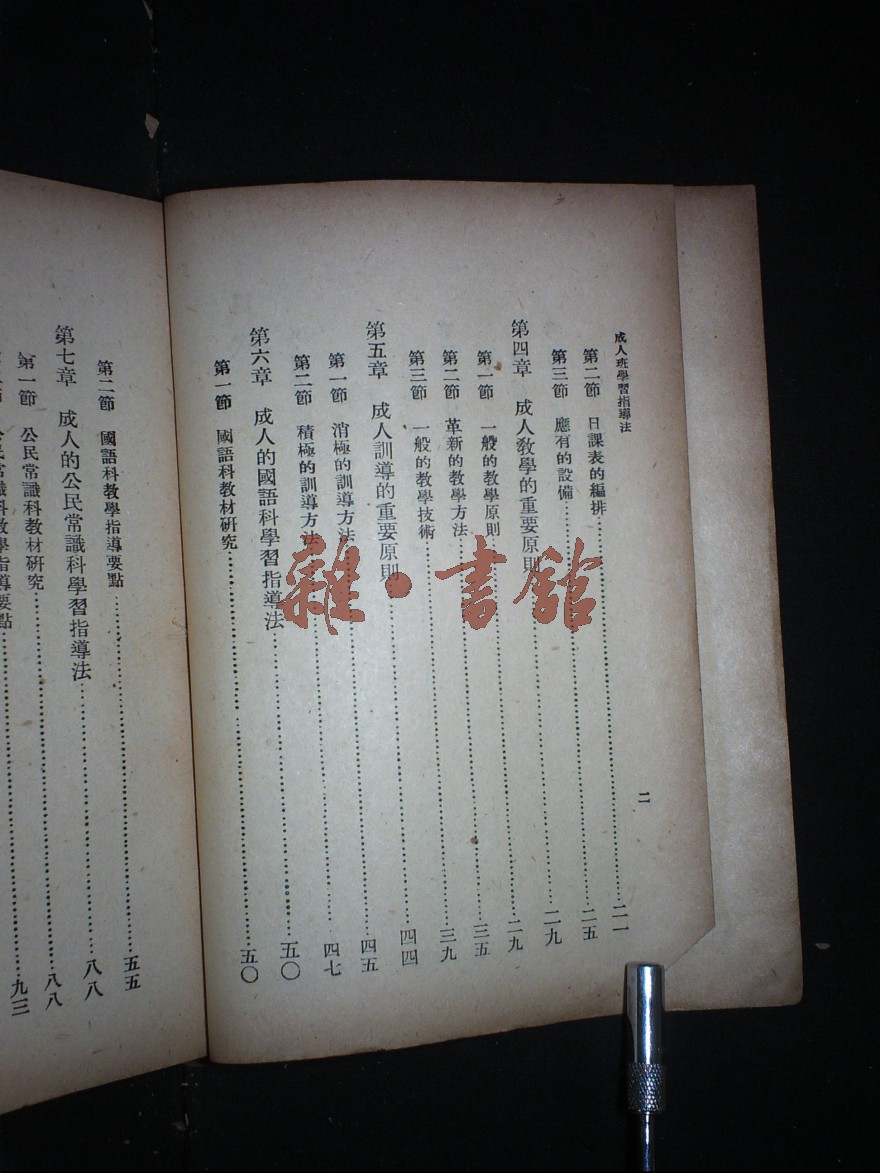 成人班學習指導法 二
第二節 日課表的編排……二一
第三節 應有的設備……二五
第四章 成人教學的重要原則……二九
第一節 一般的教學原則……二九
第二節 革新的教學方法……三五
第三節 一般的教學技術……三九
第五章 成人訓導的重要原則……四四
第一節 消極的訓導方法……四五
第二節 積極的訓導方法……四七
第六章 成人的國語科學習指導法……五〇
第一節 國語科教材研究……五〇
第二節 國語科教學指導要點……五五
第七章 成人的公民常識科學習指導法……八八
第一節 公民常識科教材研究……八八
公民常識科教學指導要點……九三
雜·書館